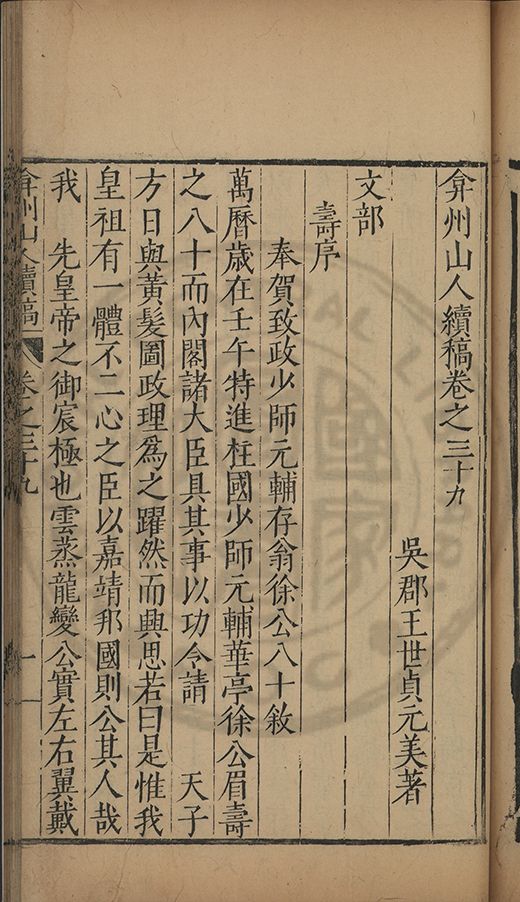 弇州山人續稿卷之三十九
吳郡王世貞元美著
文部
壽序
奉賀致政少師元輔存翁徐公八十敘
萬曆歲在壬午特進柱國少師元輔華亭徐公眉壽
之八十而內閣諸大臣具其事以功令請　天子
方日與黃髮圖政理爲之躍然而興思若曰是惟我
皇祖有一體不二心之臣以嘉靖邦國則公其人哉
我　先皇帝之御宸極也雲蒸龍變公實左右翼戴
弇州山人續稿　卷之三十九　一